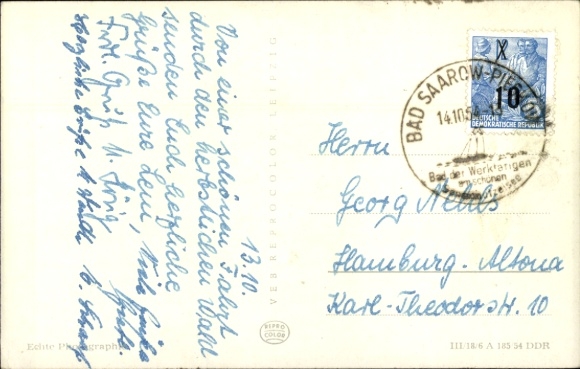 13.10.
Von einer schönen Fahrt
durch den herbstlichen Wald
senden Euch herzliche
Grüße Eure Leni,
Herzliche Grüße
VEB REPROCOLOR LEIPZIG
10
DEUTSCHE
DEMOKRATISCHE REPUBLIK
BAD SAAROW-PIESKOW
14.10.54
Bad der Werktätigen
am schönen
Herrn
Georg Nebls
Hamburg-Altona
Karl-Theodorstr. 10
REPRO
COLOR
Echte Photographie
III/18/6 A 185 54 DDR